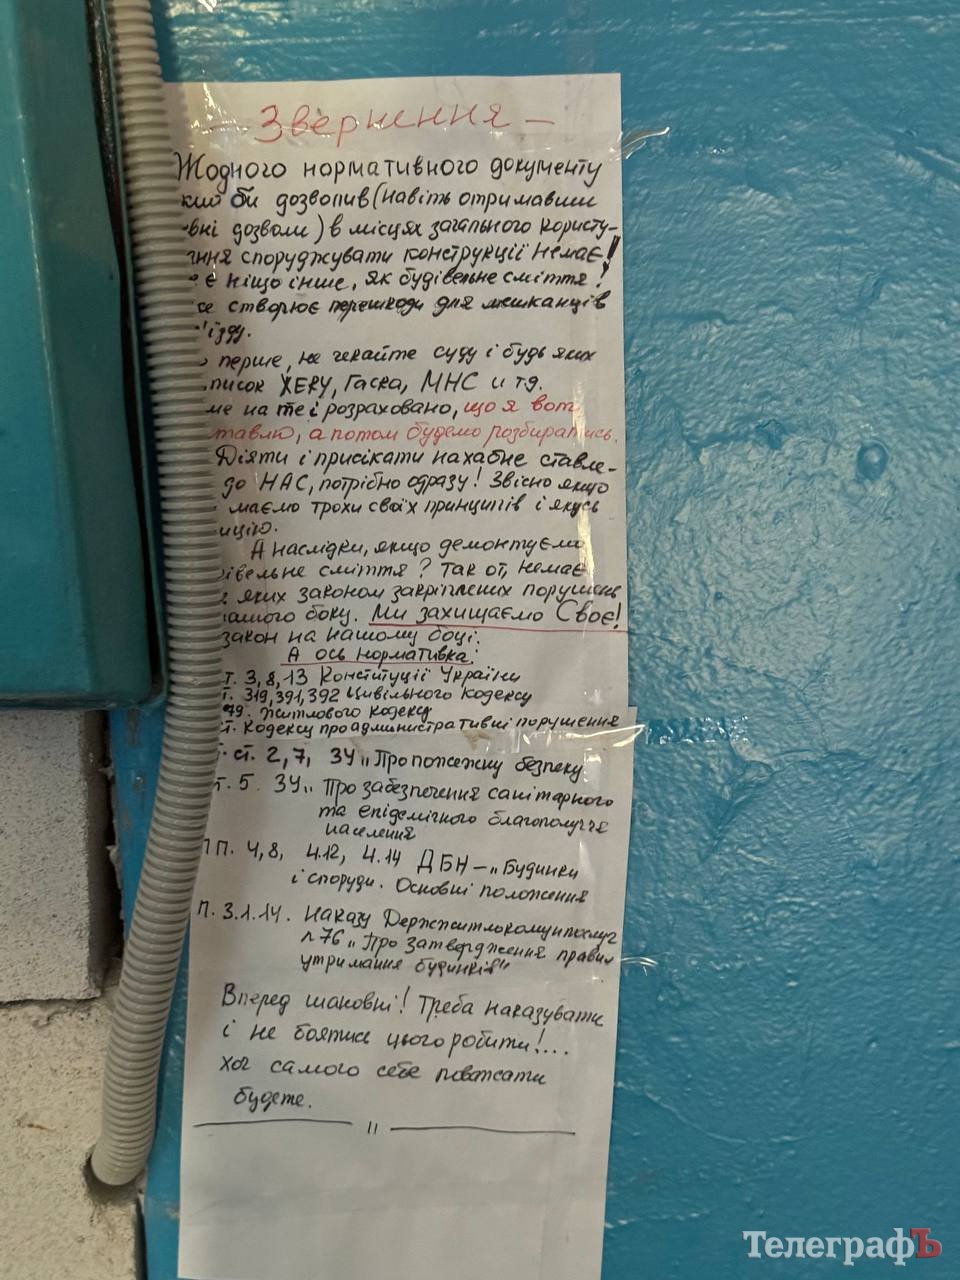 — Звернення —
Жодного нормативного документу
кий би дозволив (навіть отримавши
вні дозволи) в місцях загального користу-
ння споруджувати конструкції немає!
є ніщо інше, як будівельне сміття!
се створює перешкоди для мешканців
ʼїзду.
перше, не чекайте суду і будь яких
писок ХЕКУ, Гаска, МНС и тд.
ме на те і розраховано, що я вот
тавлю, а потом будемо розбиратись.
Діяти і присікати нахабне ставле-
до НАС, потрібно одразу! Звісно якщо
маємо трохи своїх принципів і якусь
ицію.
А наслідки, якщо демонтуємо
івельне сміття? Так от, немає
яких законом закріплених порушень
нашого боку. Ми захищаємо Своє!
закон на нашому боці.
А ось нормативка:
т. 3, 8, 13 Конституції України
т. 319, 391, 392 Цивільного Кодексу
79. Житлового кодексу
т. Кодексу про административні порушення
ст. 2, 7, ЗУ „Про пожежну безпеку
т. 5. ЗУ „Про забезпечення санітарного
та епідемічного благополуччя
населення
ПП. 4,8, 4.12, 4.14 ДБН – „Будинки
і споруди. Основні положення
П. 3.1.14. Наказу Держжитлокомунпослуг
№76 „Про затвердження правил
утримання будинків"
Вперед шановні! Треба наказувати
і не боятися цього робити!...
хоч самого себе поважати
будете.
— " —
ТелеграфЪ